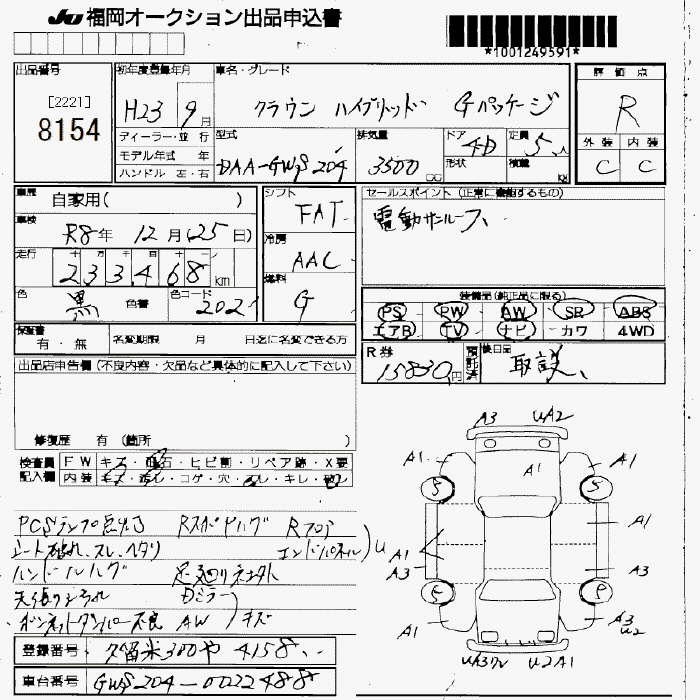 JU 福岡オークション出品申込書
*1001249591*
出品番号
[2221]
8154
初年度登録年月
H23 9月
ディーラー・並行
モデル年式 年
ハンドル 左・右
車名・グレード
クラウン ハイブリッド Gパッケージ
型式
DAA-GWS204
排気量
3500 cc
ドア
4D
形状
定員
5人
積載
kg
評価点
R
外装 内装
C C
車歴
自家用( )
車検
R8年 12月(25日)
走行
十 万 千 百 十
233468 km
色
黒
色替
色コード
202
シフト
FAT
冷房
AAC
燃料
G
セールスポイント (正常に機能するもの)
電動サンルーフ、
装備品(純正品に限る)
PS PW AW SR ABS
エアB TV ナビ カワ 4WD
R券
15830円
預託済
後日品
取説、
保証書
有・無
名変期限 月 日迄に名変できる方
出品店申告欄(不良内容・欠品など具体的に記入して下さい)
修復歴 有 (箇所 )
検査員記入欄
FW キズ・飛石・ヒビ割・リペア跡・X要
内装 キズ・汚レ・コゲ・穴・スレ・キレ・破レ
PCSランプ点灯 Rフロア
シート破れ、スレ、ヘタリ エンドパネル)U
足廻りサビ
天張り
ボンネットダンパー不良 AW キズ
登録番号 久留米300や4158
車台番号 GWS204-0022488
A3 UA2
A1 A1 A1
S S
A1 A1
A3 A3
S P
A1 A3
U2
U2A1